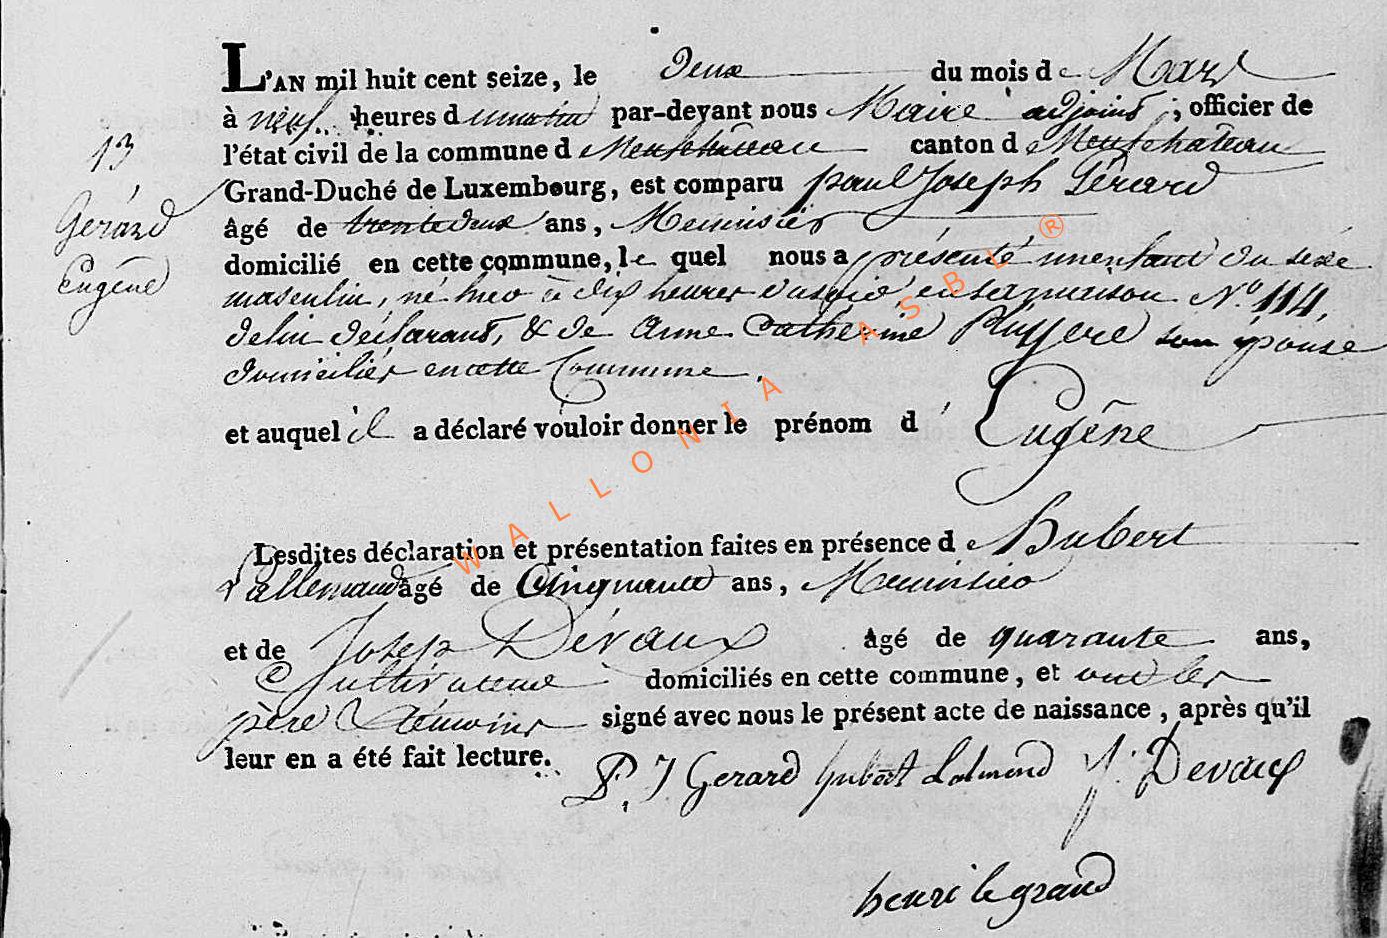 L'AN mil huit cent seize, le deux du mois de Mars
à neuf heures du matin par-devant nous Maire adjoint, officier de
l'état civil de la commune de Neufchateau canton de Neufchateau
13
Grand-Duché de Luxembourg, est comparu paul Joseph Gérard
Gerard
Eugêne
âgé de trente deux ans, Menuisier
domicilié en cette commune, le quel nous a présenté un enfant du sexe
masculin, né hier à dix heures du soir, en sa maison N.o 114,
de lui déclarant, & de Anne Catherine son épouse
domiciliés en cette Commune.
et auquel il a déclaré vouloir donner le prénom d' Eugêne
Lesdites déclaration et présentation faites en présence de Hubert
l'allemand âgé de Cinquante ans, Menuisier
et de Josep Dévaux âgé de quarante ans,
Cultivateur domiciliés en cette commune, et ont les
père & témoins signé avec nous le présent acte de naissance, après qu'il
leur en a été fait lecture.
P. J Gerard hubert Lalmend J. Devaux
henri le grand
WALLONIA ASBL ®